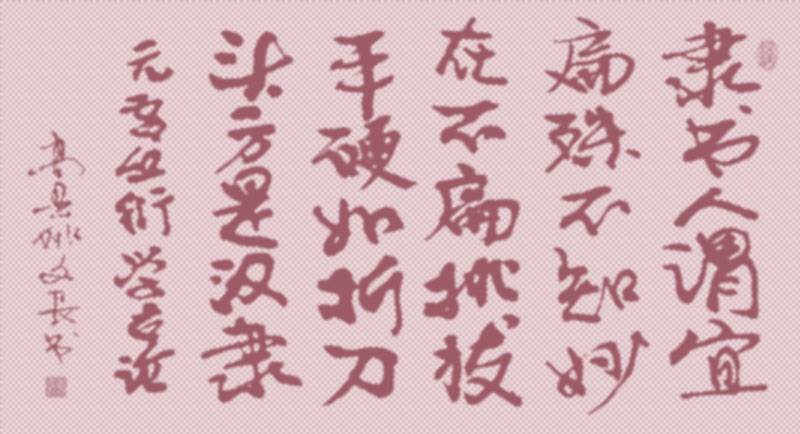 隶书人谓宜
扁殊不知妙
在不扁挑拔
平硬如折刀
头方是汉隶
元吾丘衍学古论
姚文長书